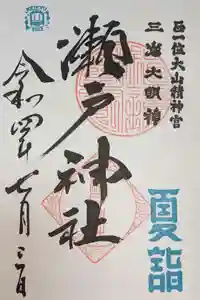 正一位大山積神宮
三嶋大明神
瀬戸神社
令和四年七月三日
夏詣